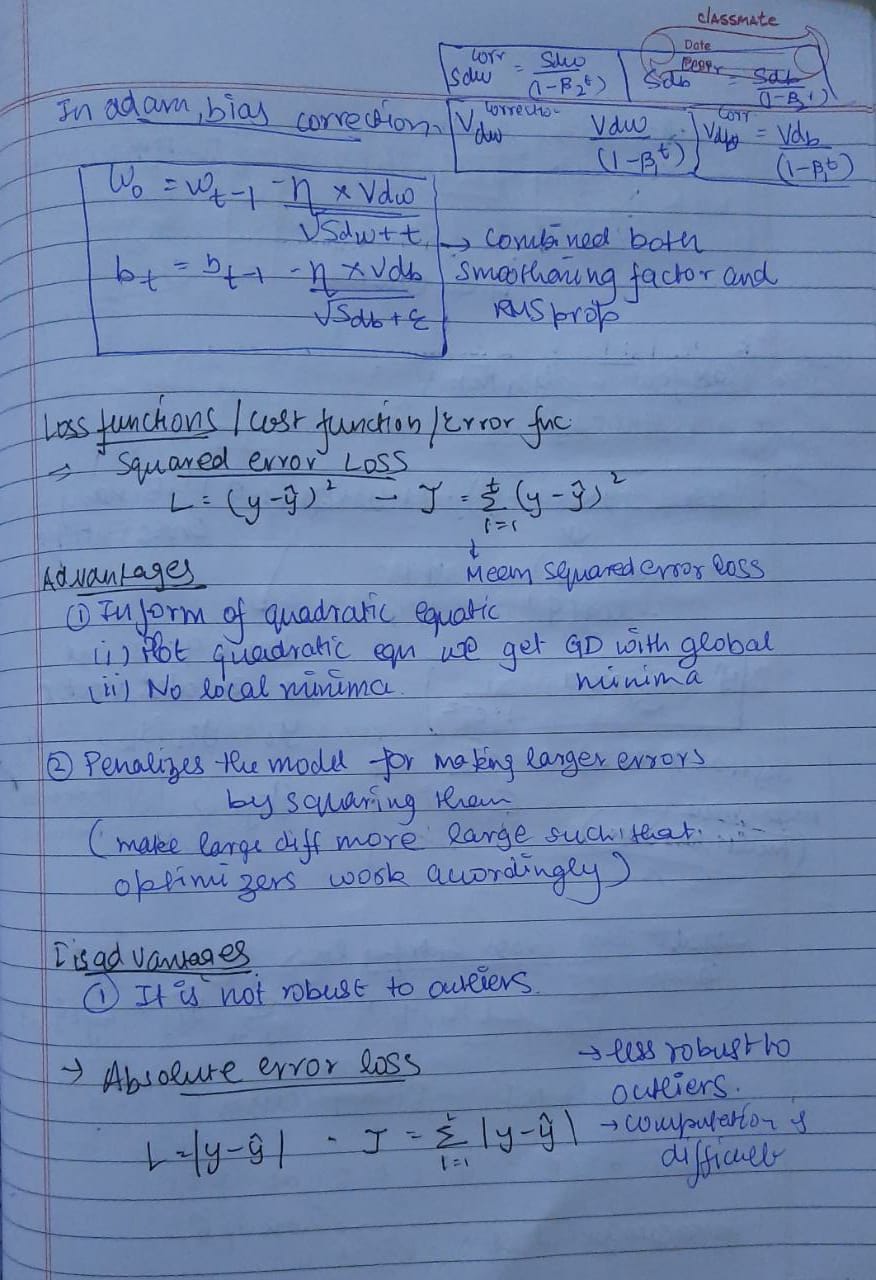 classmate
Date
Page
Sdw^corr = Sdw / (1-β2^t) | Sdb^corr = Sdb / (1-β2^t)
In adam, bias correction. Vdw^correctio- Vdw / (1-β1^t) | Vdb^corr = Vdb / (1-β1^t)
W0 = Wt-1 - η × Vdw / √Sdw + t
→ combined both
bt = bt-1 - η × Vdb / √Sdb + ε
smoothening factor and
RMS prop
Loss functions / Cost function / Error func
⇒ Squared error Loss
L = (y-ŷ)² - J = Σ i=1 t (y-ŷ)²
↓
Mean squared error loss
Advantages
① In form of quadratic equatic
(i) Plot quadratic eqn we get GD with global
minima
(ii) No local minima.
② Penalizes the model for making larger errors
by squaring them
(make large diff more large such that
optimizers work accordingly)
Disadvantages
① It is not robust to outliers.
→ Absolute error loss
→ less robust to
outliers.
L = |y-ŷ| - J = Σ i=1 t |y-ŷ|
→ computation is
difficult